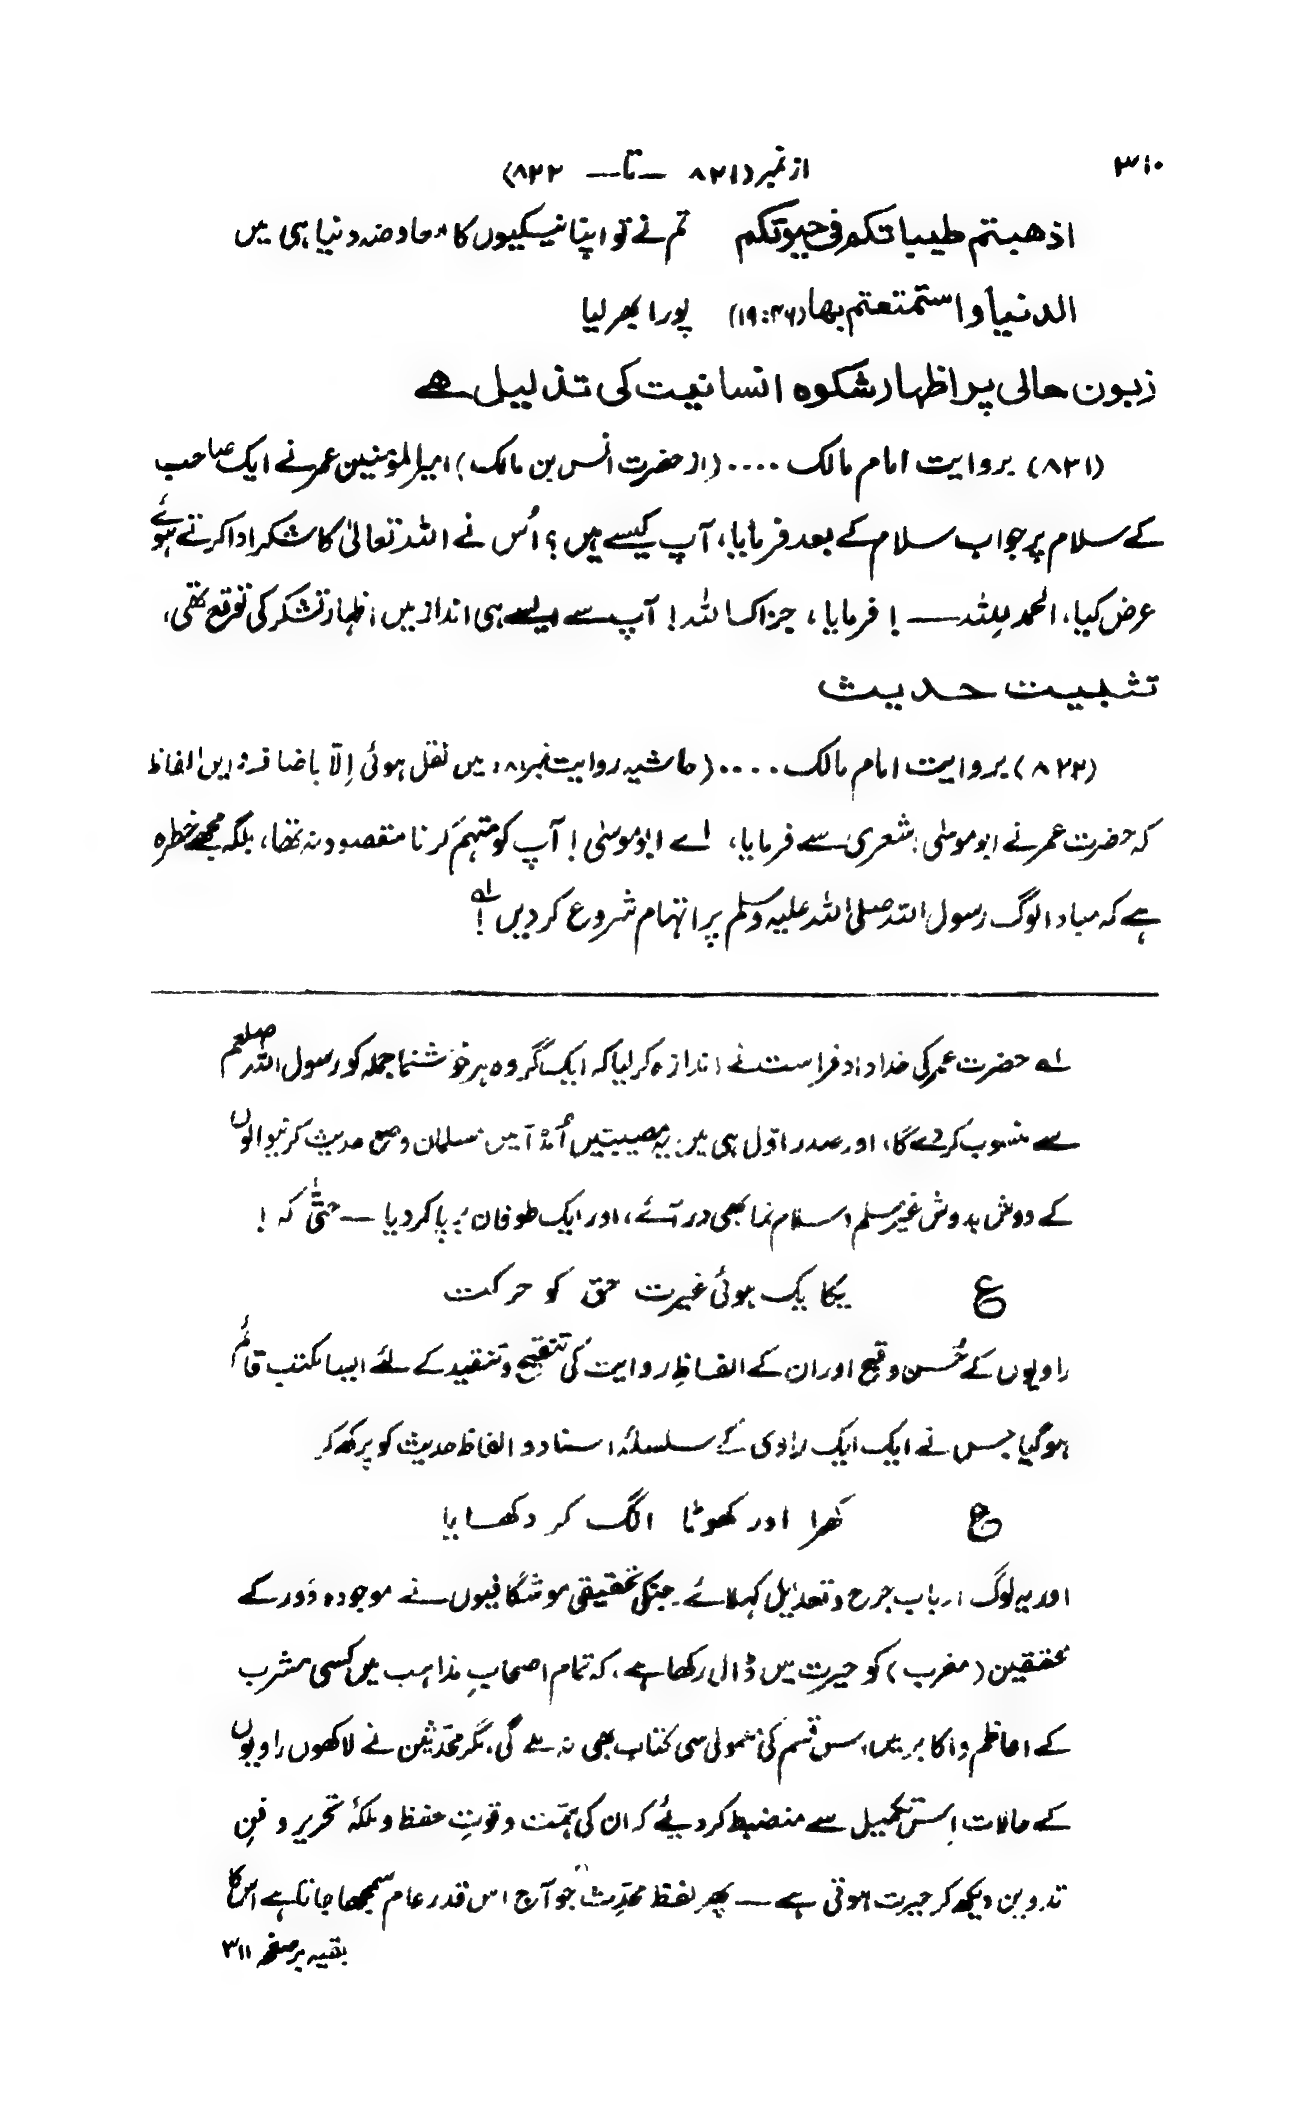 ۳۱۰
از نمبر (۸۲۱ — تا — ۸۲۲)
اذھبتم طیباتکم فی حیوتکم تم نے تو اپنا نیکیوں کا معاوضہ دنیا ہی میں
الدنیا واستمتعتم بھا (۱۹:۴۶) پورا بھر لیا
زبون حالی پر اظہار شکوہ انسانیت کی تذلیل ھے
(۸۲۱) بروایت امام مالک .... (از حضرت انس بن مالک) امیرالمؤمنین عمر نے ایک صاحب
کے سلام پر جواب سلام کے بعد فرمایا، آپ کیسے ہیں؟ اُس نے اللہ تعالیٰ کا شکر ادا کرتے ہوئے
عرض کیا، الحمد للہ — ! فرمایا، جزاکما اللہ! آپ سے ایسے ہی انداز میں اظہار تشکر کی توقع تھی،
تثبیت حدیث
(۸۲۲) بروایت امام مالک .... (حاشیہ روایت نمبر میں نقل ہوئی اِلّا باضافہ ایں الفاظ
کہ حضرت عمر نے ابو موسیٰ اشعری سے فرمایا، اے ابو موسیٰ! آپ کو متہم کرنا مقصود نہ تھا، بلکہ مجھے خطرہ
ہے کہ مبادا لوگ رسول اللہ صلی اللہ علیہ وسلم پر اتہام شروع کر دیں! لہ
لہ حضرت عمر کی خداداد فراست نے اندازہ کر لیا کہ ایک گروہ ہر خوشنما جملہ کو رسول اللہ صلعم
سے منسوب کر دے گا، اور صدر اوّل ہی میں یہ مصیبتیں اُمڈ آئیں مسلمان وضع حدیث کرنیوالوں
کے دوش بدوش غیر مسلم اسلام نما بھی در آئے، اور ایک طوفان برپا کر دیا — حتّٰی کہ!
ع یکایک ہوئی غیرت حق کو حرکت
راویوں کے حُسن و قبح اور ان کے الفاظِ روایت کی تنقیح و تنقید کے لئے ایسا مکتب قائم
ہو گیا جس نے ایک ایک راوی کے سلسلۂ اسناد و الفاظ حدیث کو پرکھ کر
ع کھرا اور کھوٹا الگ کر دکھایا
اور یہ لوگ ارباب جرح و تعدیل کہلائے۔ جنکی تحقیقی موشگافیوں نے موجودہ دَور کے
محققین (مغرب) کو حیرت میں ڈال رکھا ہے، کہ تمام اصحابِ مذاہب میں کسی مشرب
کے اعاظم و اکابر میں اس قسم کی معمولی سی کتاب بھی نہ ملے گی، مگر محدّثین نے لاکھوں راویوں
کے حالات اس تکمیل سے منضبط کر دیئے کہ ان کی ہمّت و قوتِ حفظ و ملکۂ تحریر و فنِ
تدوین دیکھ کر حیرت ہوتی ہے — پھر لفظ محدّث جو آج اس قدر عام سمجھا جاتا ہے اس کا
بقیہ بر صفحہ ۳۱۱